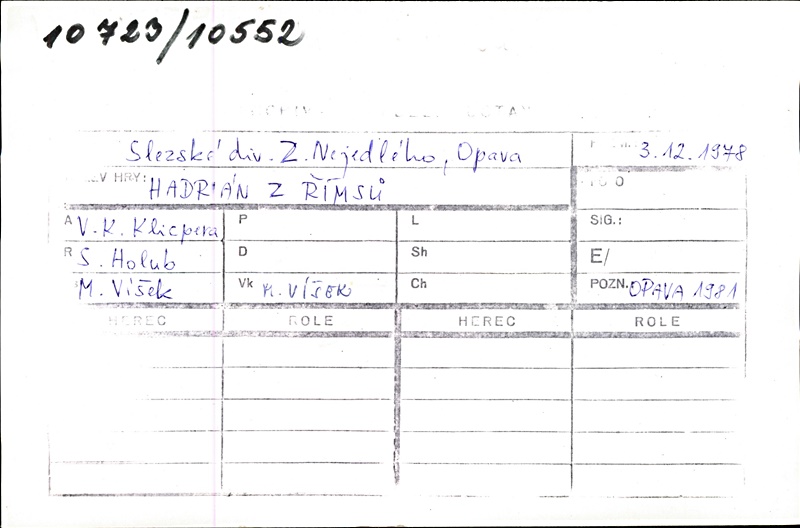 10 723/10552
Slezské div. Z. Nejedlého, Opava 3.12.1978
HRY: HADRIÁN Z ŘÍMSŮ
A V. K. Klicpera P L SIG.:
R S. Holub D Sh E/
M. Víšek Vk M. VÍŠEK Ch POZN. OPAVA 1981
HEREC ROLE HEREC ROLE